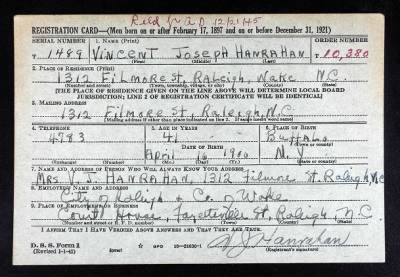 Rel'd for A D 12/21/45
REGISTRATION CARD—(Men born on or after February 17, 1897 and on or before December 31, 1921)
SERIAL NUMBER 1. NAME (Print) ORDER NUMBER
T 1489 Vincent Joseph Hanrahan T 10,380
(First) (Middle) (Last)
2. PLACE OF RESIDENCE (Print)
1312 Filmore St, Raleigh, Wake N.C.
(Number and street) (Town, township, village, or city) (County) (State)
[THE PLACE OF RESIDENCE GIVEN ON THE LINE ABOVE WILL DETERMINE LOCAL BOARD
JURISDICTION; LINE 2 OF REGISTRATION CERTIFICATE WILL BE IDENTICAL]
3. MAILING ADDRESS
1312 Filmore St., Raleigh, N.C.
[Mailing address if other than place indicated on line 2. If same insert word same]
4. TELEPHONE 5. AGE IN YEARS 6. PLACE OF BIRTH
4793 41 Buffalo
DATE OF BIRTH (Town or county)
April 16 1900 N.Y.
(Exchange) (Number) (Mo.) (Day) (Yr.) (State or country)
7. NAME AND ADDRESS OF PERSON WHO WILL ALWAYS KNOW YOUR ADDRESS
Mrs V. J. Hanrahan, 1312 Filmore St. Raleigh N.C.
8. EMPLOYER'S NAME AND ADDRESS
City of Raleigh & Co. of Wake
9. PLACE OF EMPLOYMENT OR BUSINESS
Court House, Fayetteville St., Raleigh, N.C.
(Number and street or R. F. D. number) (Town) (County) (State)
I AFFIRM THAT I HAVE VERIFIED ABOVE ANSWERS AND THAT THEY ARE TRUE.
D. S. S. Form 1
(Revised 1-1-42) (over) GPO 16-21630-1
V J Hanrahan